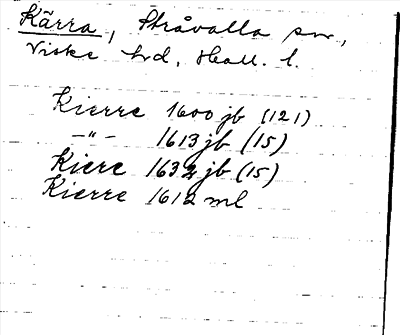 Kärra, Stråvalla sn,
Viske hd, Hall. l.
Kierre 1600 jb (121)
—"— 1613 jb (15)
Kiere 1632 jb (15)
Kierre 1612 ml